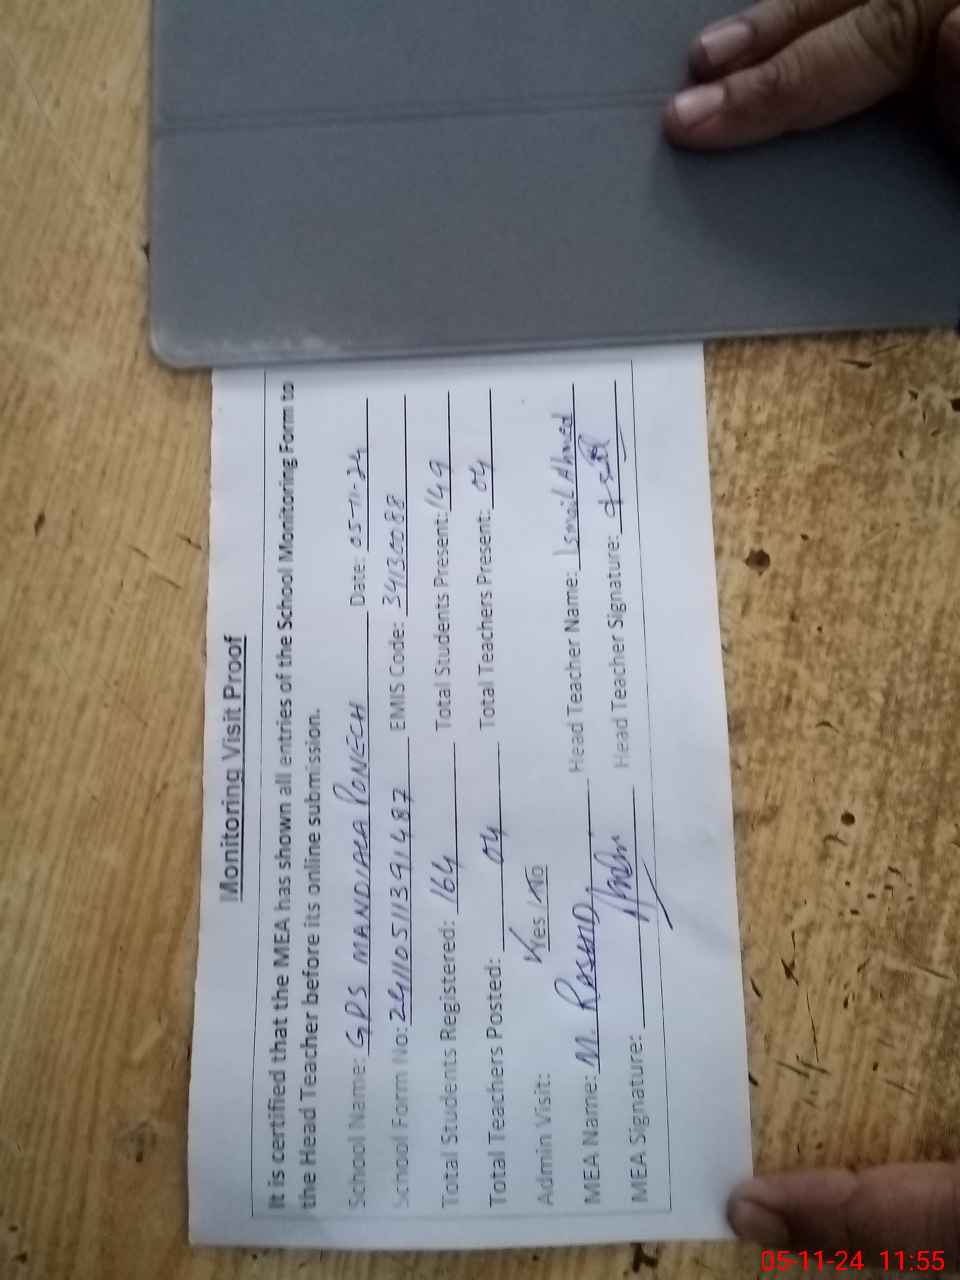 Monitoring Visit Proof
It is certified that the MEA has shown all entries of the School Monitoring Form to
the Head Teacher before its online submission.
School Name: GPS MANDIALA PONECH Date: 05-11-24
School Form No: 24110511391487 EMIS Code: 34130088
Total Students Registered: 164 Total Students Present: 149
Total Teachers Posted: 04 Total Teachers Present: 04
Admin Visit: Yes / No
MEA Name: M. RASHID Head Teacher Name: Ismail Ahmed
MEA Signature: Head Teacher Signature:
05-11-24 11:55